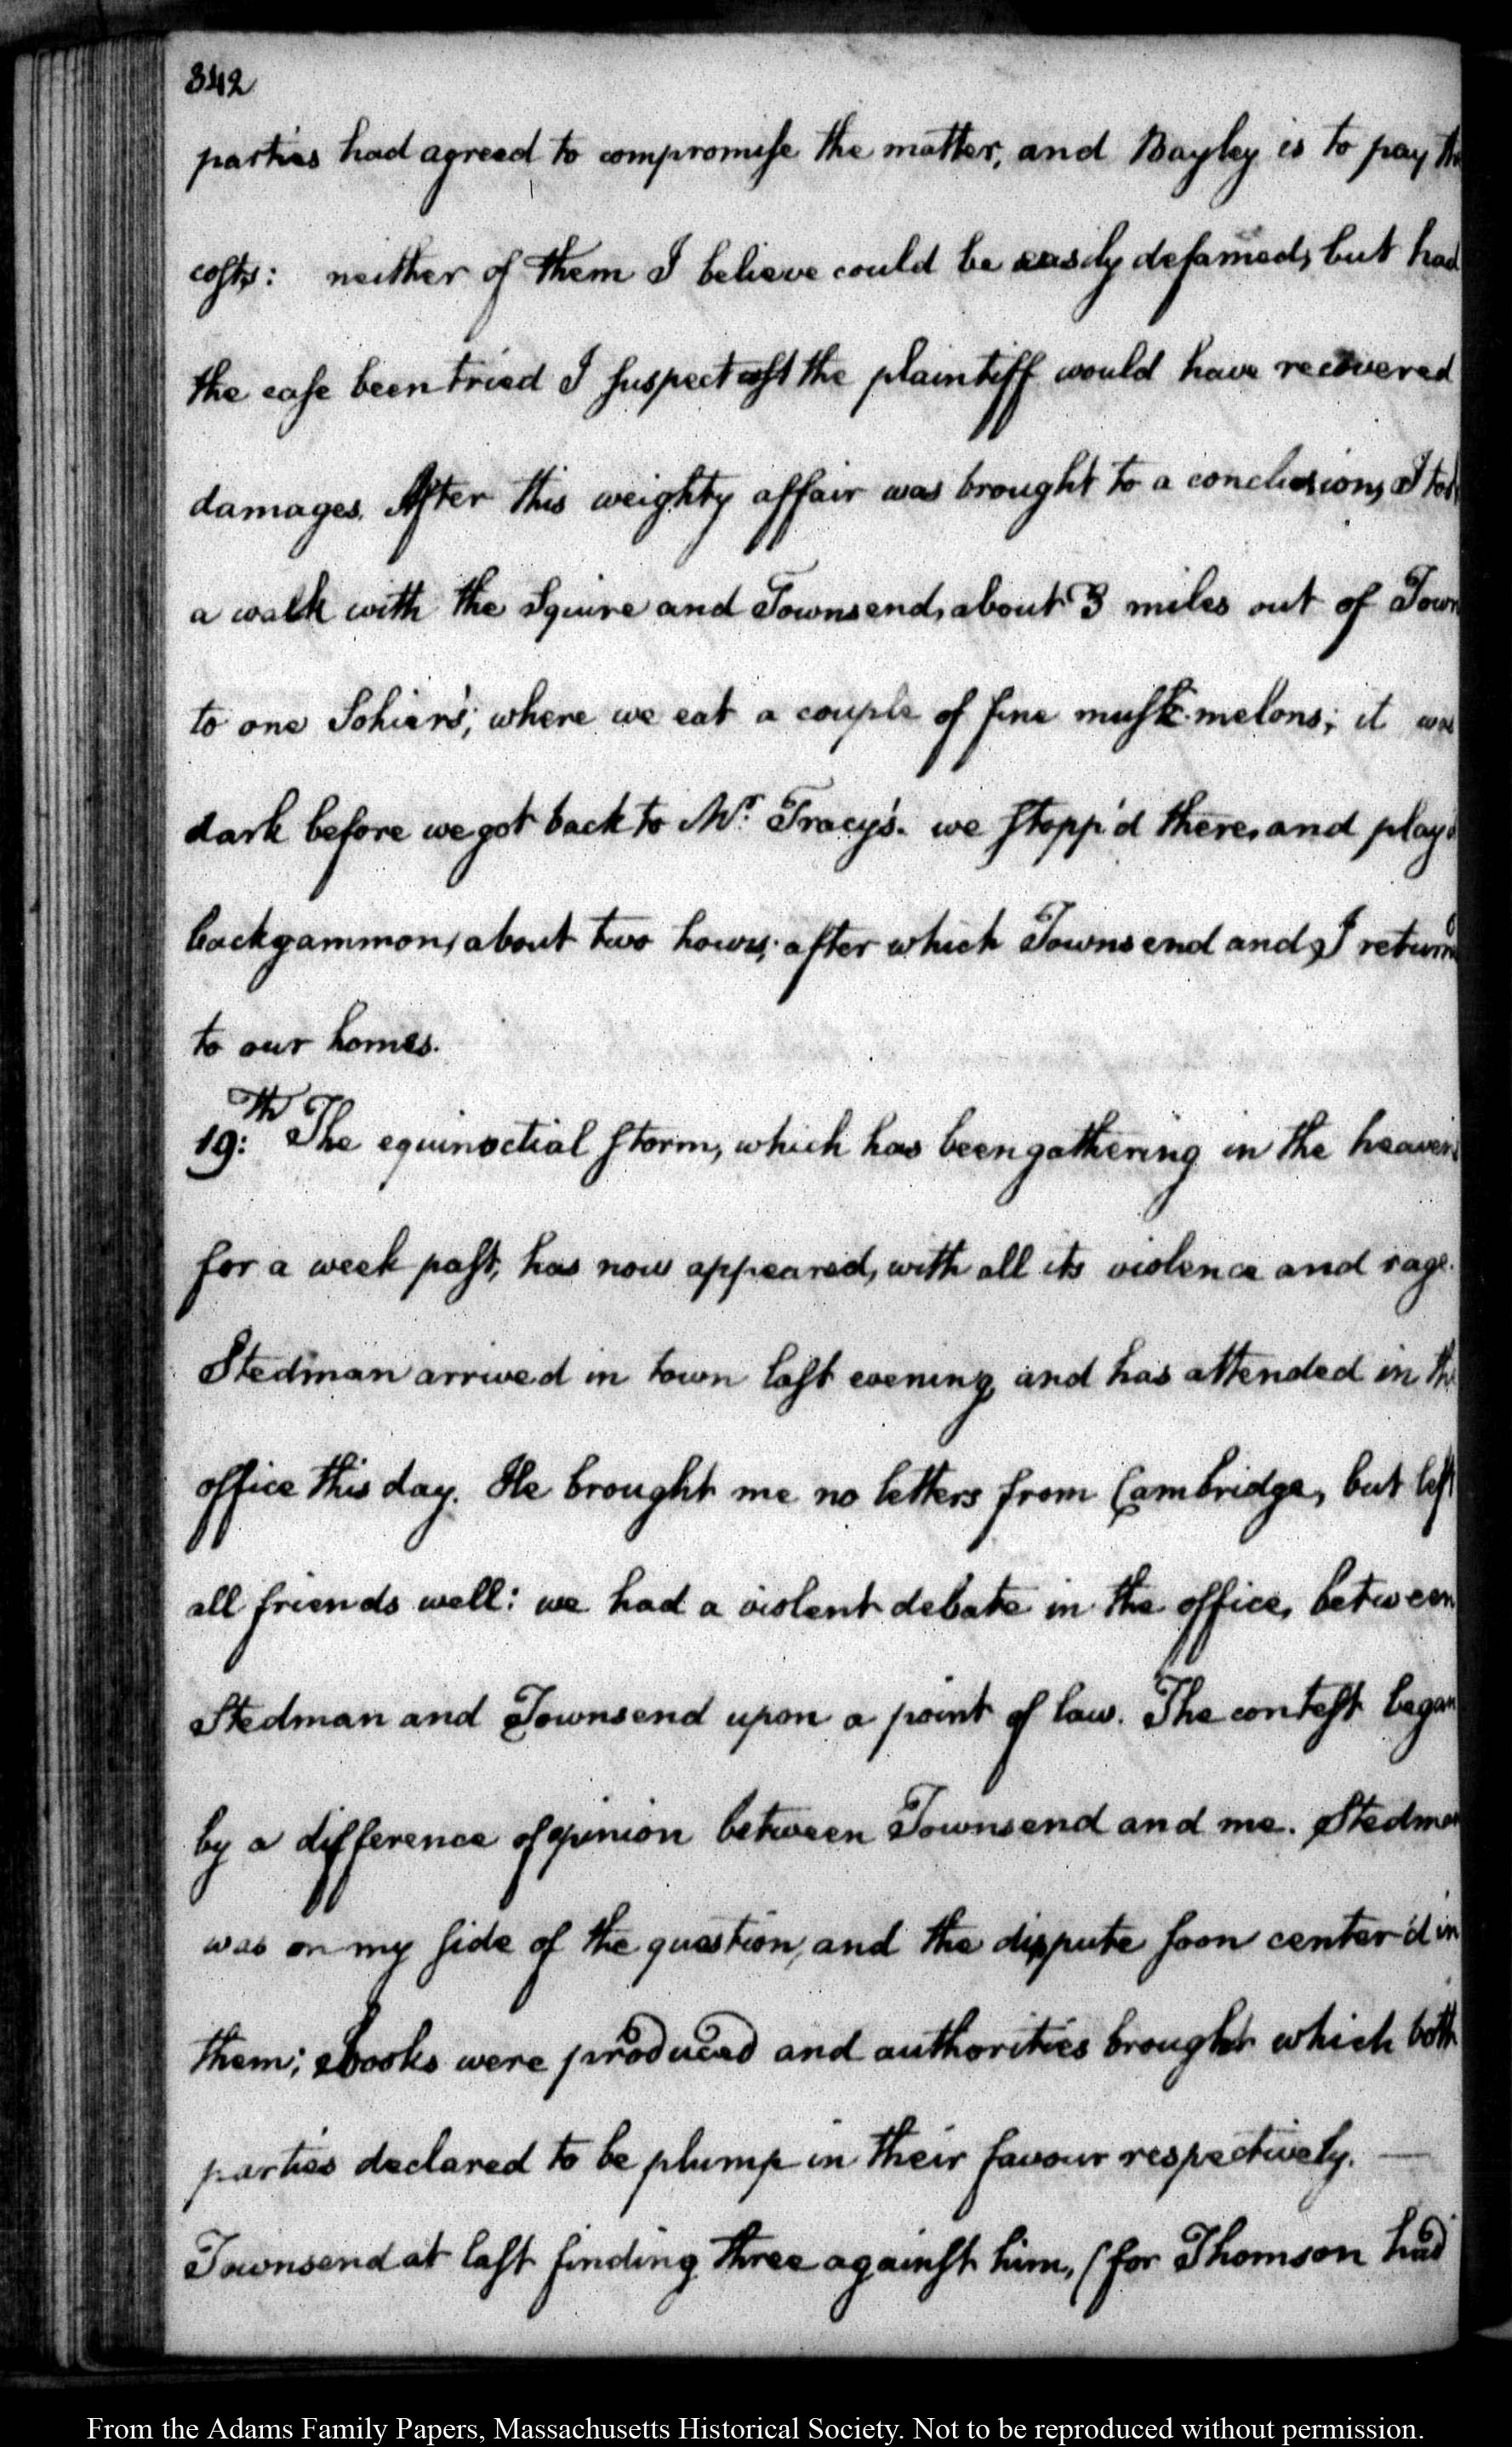 342
parties had agreed to compromise the matter, and Bayley is to pay the
costs: neither of them I believe could be easily defamed, but had
the case been tried I suspect the plaintiff would have recovered
damages. After this weighty affair was brought to a conclusion, I took
a walk with the Squire and Townsend, about 3 miles out of Town
to one Sohier's; where we eat a couple of fine musk-melons; it was
dark before we got back to Mr. Tracy's. we stopp'd there, and play'd
backgammon, about two hours; after which Townsend and I return'd
to our homes.
19:th The equinoctial storm, which has been gathering in the heavens
for a week past, has now appeared, with all its violence and rage.
Stedman arrived in town last evening, and has attended in the
office this day. He brought me no letters from Cambridge, but left
all friends well: we had a violent debate in the office, between
Stedman and Townsend upon a point of law. The contest began
by a difference of opinion between Townsend and me. Stedman
was on my side of the question, and the dispute soon center'd in
them; books were produced and authorities brought which both
parties declared to be plump in their favour respectively. —
Townsend at last finding three against him, (for Thomson had
From the Adams Family Papers, Massachusetts Historical Society. Not to be reproduced without permission.